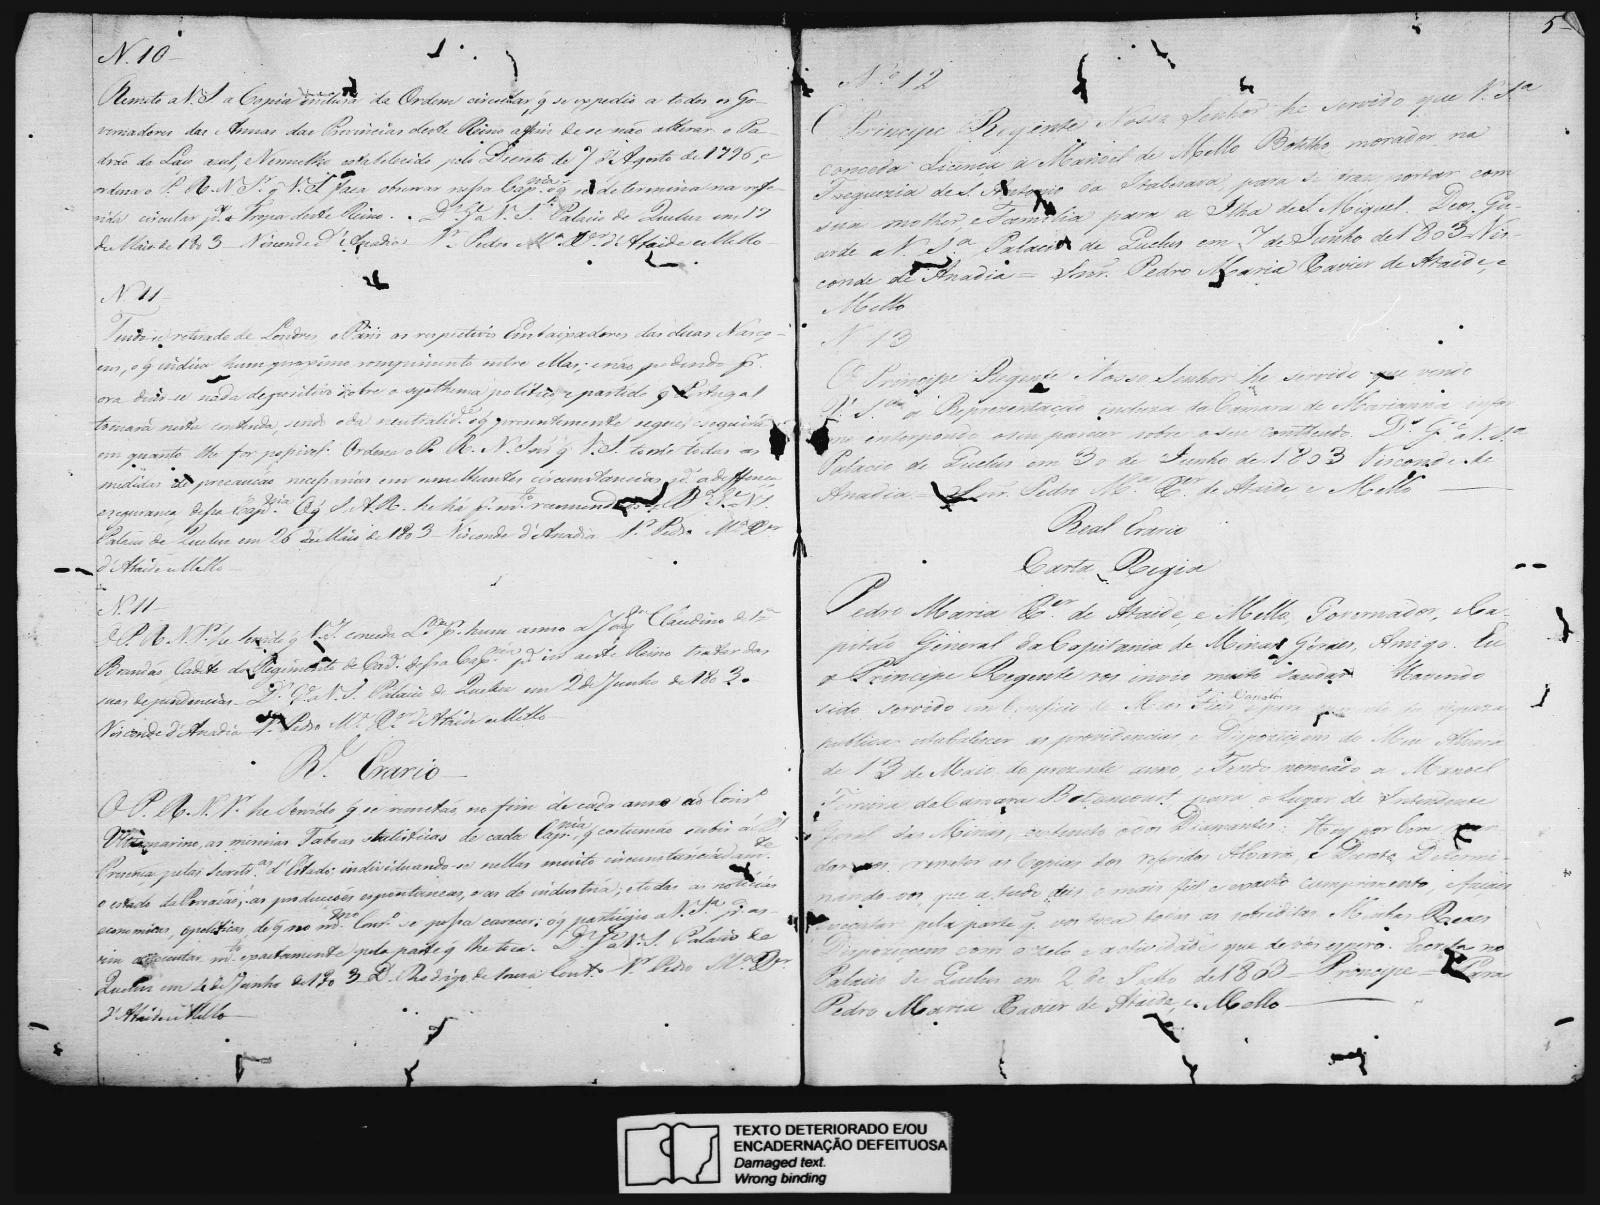 N. 10
Remeto a V. S. a Copia incluza da Ordem circular, q̃ se expedio a todos os Go-
vernadores das Armas das Provincias deste Reino afim de se não alterar o Pa-
drão do Laço azul, e Vermelho estabelecido pelo Decreto de 7 d'Agosto de 1796, e
ordena o P. R. N. Sr. q̃ V. S. faça observar nessa Cap.nia o q̃ se determina na refe-
rida circular p.a a Tropa deste Reino. Ds. Ge. a V. S. Palacio de Queluz em 17
de Maio de 1803 Visconde d'Anadia Sr. Pedro Ma. Xer. d'Ataide e Mello
N. 11
Tendo-se retirado de Londres, e Paris os respectivos Embaixadores das duas Naço-
ens, o q̃ indica hum proximo rompimento entre ellas; e não podendo pr.
ora dizer-se nada de positivo sobre o systhema politico, e partido q̃ Portugal
tomará nesta contenda, sendo o da neutralid.e o q̃ prezentemente segue, e seguirá
em quanto lhe for possivel. Ordena o P. R. N. Snr. q̃ V. S. tome todas as
medidas de precaução necessarias em semelhantes circunstancias pa. a deffença
e segurança dessa Cap.nia O q̃ S. A. R. lhe há pr. mto. recommendado. Ds. Ge. a V. S.
Palacio de Queluz em 26 de Maio de 1803 Visconde d'Anadia Sr. Pedro Ma. Xer
d'Ataide e Mello
N. 11
O P. R. N. Sr. he servido q̃ V. S. conceda L.ça pr. hum anno a José Claudino de
Brandas Cadete do Regimento de Cav. dessa Cap.nia pa. vir a este Reino tratar das
suas dependencias. Ds. Ge. a V. S. Palacio de Queluz em 2 de Junho de 1803.
Visconde d'Anadia Sr. Pedro Ma. Xer. d'Ataide e Mello
Rl. Erario
O P. R. N. Sr. he servido q̃ se remetão no fim de cada anno ao Cons.o
Ultramarino, as mesmas Taboas statisticas de cada Cap.nia, q̃ costumão subir á
Prezença pelas Secret.as d'Estado; individuando-se nellas muito circunstanciadam.te
o estado da Povoação; as producções espontaneas, e as de industria; e todas as noticias
economicas, e politicas, de q̃ no m.mo Cons.o se possa carecer; o q̃ participo a V. S.a pa. as-
sim executar m.to exactamente pela parte q̃ lhe toca. Ds. Ge. a V. S. Palacio de
Queluz em 4 de Junho de 1803 D. Rodrigo de Souza Cout.o Sr. Pedro Ma. Xer.
d'Ataide e Mello
5
N.o 12
O Principe Regente Nosso Senhor he servido que V. S.a
conceda Licença a Manoel de Mello Botelho, morador na
Freguezia de S. Antonio da Itaberava para se transportar com
sua molher, e Familia para a Ilha de S. Miguel. Deos Gu-
arde a V. S.a Palacio de Queluz em 7 de Junho de 1803 Vis-
conde de Anadia = Snr. Pedro Maria Xavier de Ataide, e
Mello
N 13
O Principe Regente Nosso Senhor he servido que vendo
V. S.a a Reprezentação incluza da Camara de Marianna infor
me interpondo o seu parecer sobre o seu contheudo. Ds. Ge. a V. S.a
Palacio de Queluz em 30 de Junho de 1803 Visconde de
Anadia = Snr. Pedro M.a X.er de Ataide e Mello
Real Erario
Carta Regia
Pedro Maria X.er de Ataide, e Mello, Governador, e Ca-
pitão General da Capitania de Minas Geraes, Amigo. Eu
o Principe Regente vos invio muito saudar. Havendo
sido servido em beneficio de Meos Fieis Vassalos e para
publica estabelecer as providencias, e Dispoziçoens do Meu Alvará
de 13 de Maio do prezente anno, e Tendo nomeado a Manoel
Ferreira da Camara Betancourt para o lugar de Intendente
Geral das Minas, e dos Diamantes: Hey por bem man
dar vos remeter as Copias dos referidos Alvará, e Decreto, Determi-
nando-vos que a tudo deis o mais fiel e exacto cumprimento, e façais
executar pela parte q̃ vos toca todas as sobreditas Minhas Reaes
Dispoziçoens com o zelo e actividade que de vós espero. Escrita no
Palacio de Queluz em 2 de de 1803 Principe Para
Pedro Maria Xavier de Ataide, e Mello
TEXTO DETERIORADO E/OU
ENCADERNAÇÃO DEFEITUOSA
Damaged text.
Wrong binding